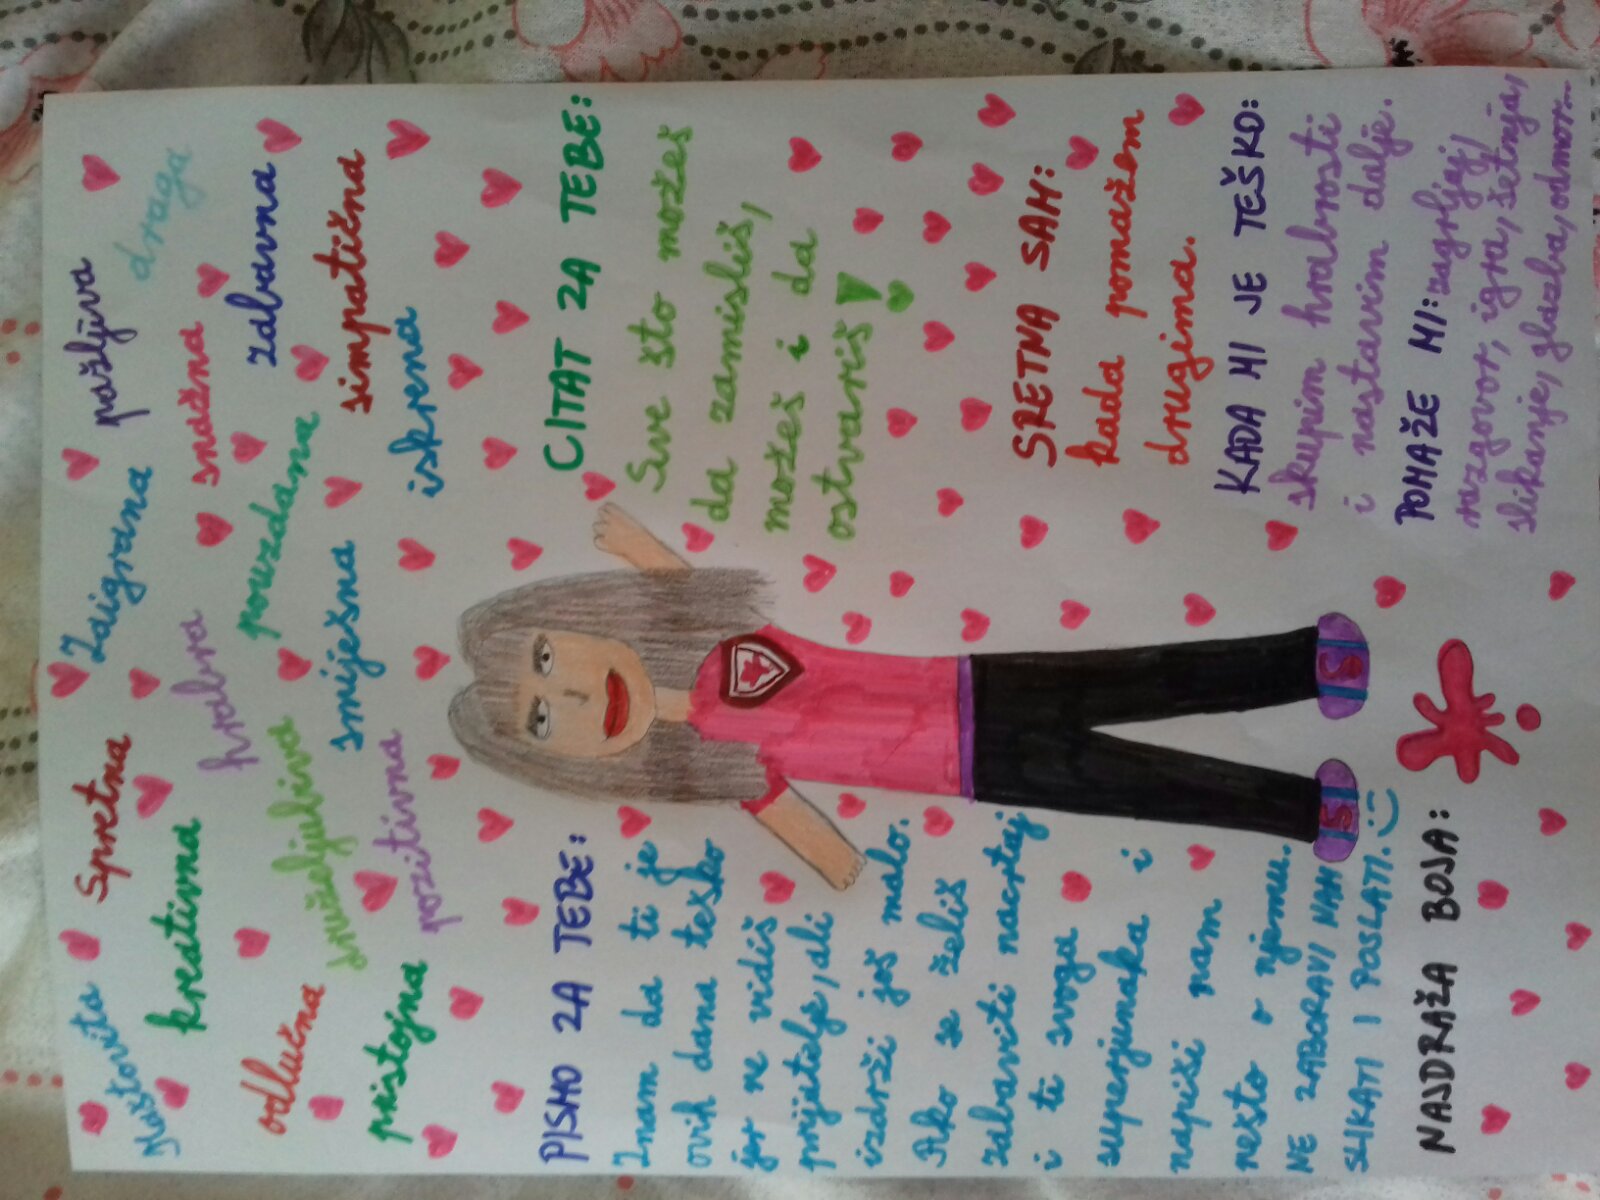 Maštovita
Spretna
Zaigrana
pažljiva
draga
kreativna
hrabra
snažna
zabavna
odlučna
snušeljubiva
pouzdana
simpatična
pristojna
pozitivna
smiješna
iskrena
PISMO ZA TEBE:
Znam da ti je
ovih dana teško
jer ne vidiš
prijatelje, ali
izdrži još malo.
Ako se želiš
zabaviti nacrtaj
i ti svoga
superjunaka i
napiši nam
nešto o njemu.
NE ZABORAVI NAM
SLIKATI I POSLATI. :)
NAJDRAŽA BOJA:
CITAT ZA TEBE:
Sve što možeš
da zamisliš,
možeš i da
ostvariš!
SRETNA SAM:
kada pomažem
drugima.
KADA MI JE TEŠKO:
skupim hrabrosti
i nastavim dalje.
POMAŽE MI: zagrljaj,
razgovor, igra, šetnja,
slikanje, glazba, odmor...
S
S